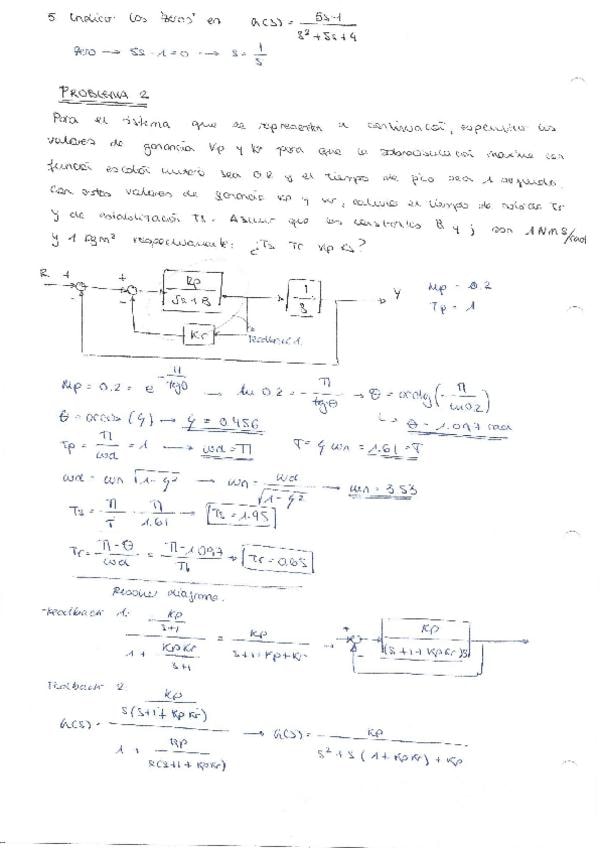 5 Indicar los "zeros" en G(s) = (5s-1)/(s²+5s+4)
Zero → 5s-1=0 → s = 1/5
PROBLEMA 2
Para el sistema que se representa a continuación, especificar los
valores de ganancia Kp y Kr para que la sobreoscilación máxima con
función escalón unitario sea 0.2 y el tiempo de pico sea 1 segundo.
Con estos valores de ganancia Kp y Kr, calcular el tiempo de subida Tr
y de estabilización Ts. Asumir que las constantes B y J son 1 Nms/rad
y 1 kgm² respectivamente: ¿Ts Tr Kp Kr?
R + - + - Kp/(Js+B) 1/s Y Mp = 0.2
Kr feedback 1. Tp = 1
Mp = 0.2 = e^(-π/tgθ) → ln 0.2 = -π/tgθ → θ = arctg(-π/ln0.2)
θ = arcos(ϕ) → ϕ = 0.456 → θ = 1.097 rad
Tp = π/ωd = 1 → ωd = π T = ϕ ωn = 1.61 = T
ωd = ωn √(1-ϕ²) → ωn = ωd/√(1-ϕ²) → ωn = 3.53
Ts = π/T = π/1.61 → Ts = 1.95
Tr = (π-θ)/ωd = (π-1.097)/π → Tr = 0.65
Resolver diagrama.
-Feedback 1: (Kp/(s+1))/(1 + KpKr/(s+1)) = Kp/(s+1+Kp+Kr) → + - Kp/((s+1+KpKr)s)
Feedback 2:
G(s) = (Kp/(s(s+1+KpKr)))/(1 + Kp/(s(s+1+KpKr))) → G(s) = Kp/(s²+s(1+KpKr)+Kp)